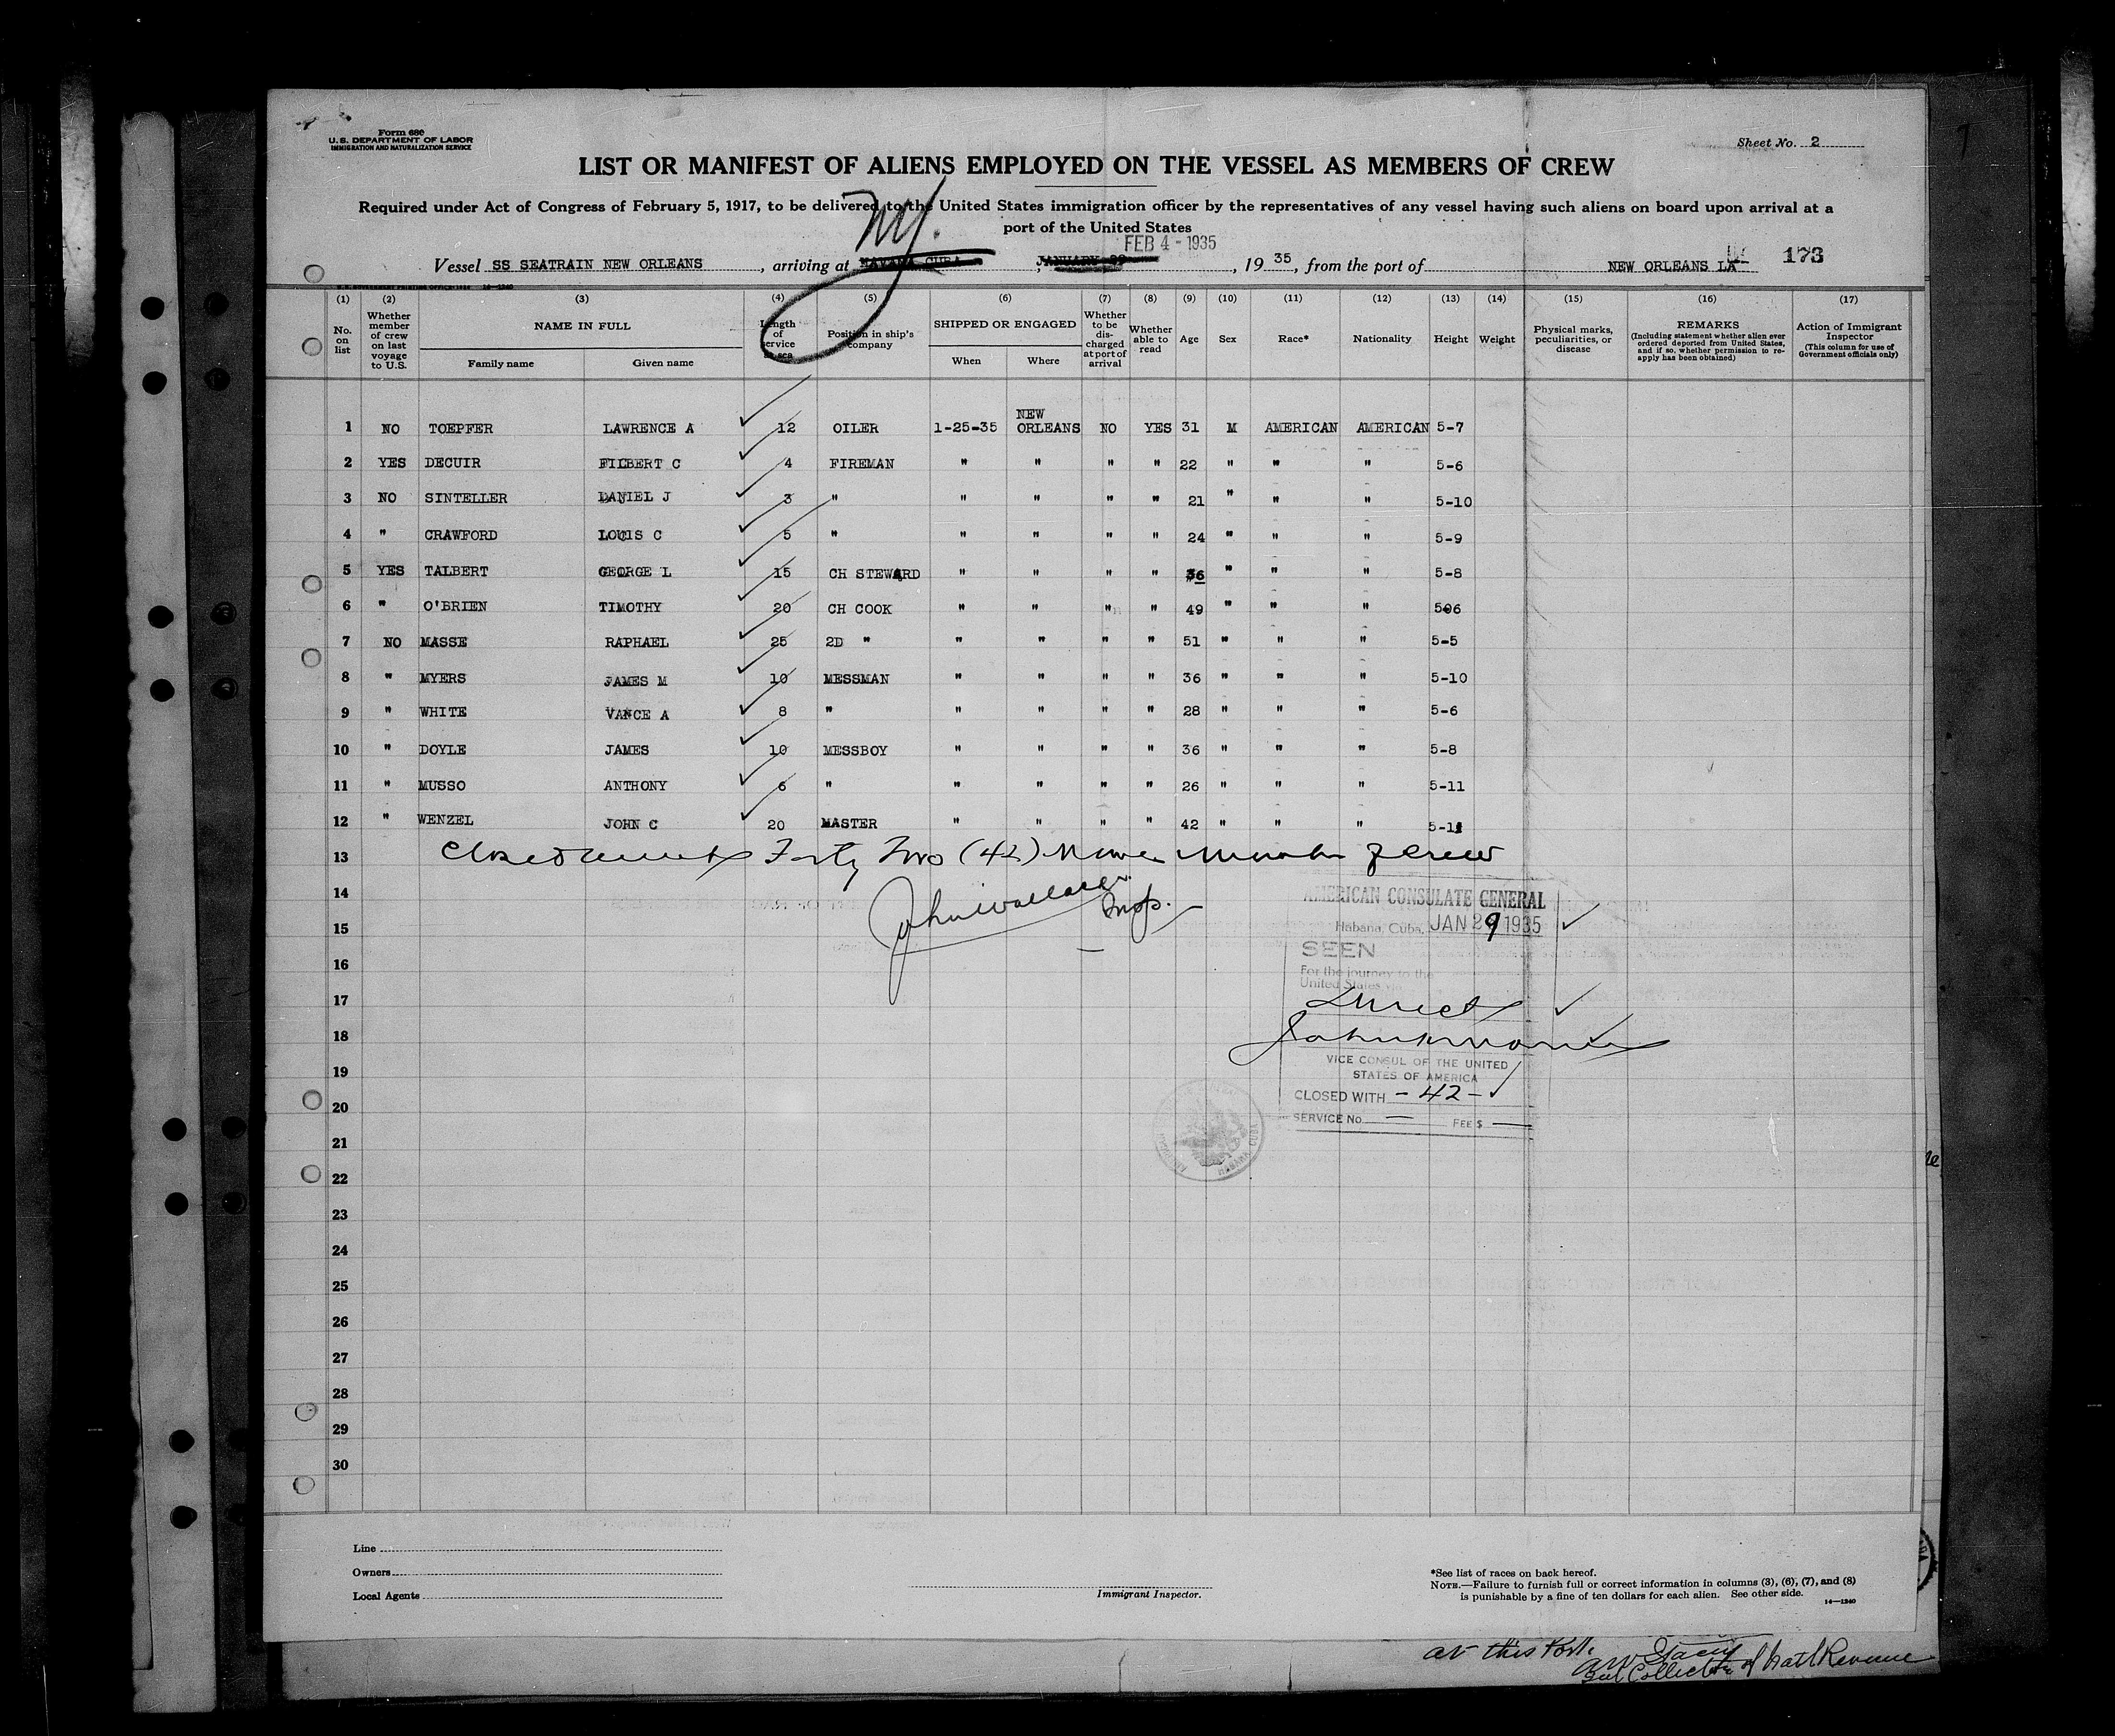 Form 680
U. S. DEPARTMENT OF LABOR
IMMIGRATION AND NATURALIZATION SERVICE
Sheet No. 2
LIST OR MANIFEST OF ALIENS EMPLOYED ON THE VESSEL AS MEMBERS OF CREW
Required under Act of Congress of February 5, 1917, to be delivered to the United States immigration officer by the representatives of any vessel having such aliens on board upon arrival at a
port of the United States
N.Y.
FEB 4 - 1935
Vessel SS SEATRAIN NEW ORLEANS, arriving at HAVANA CUBA, JANUARY, 1935, from the port of NEW ORLEANS LA 173
(1) (2) (3) (4) (5) (6) (7) (8) (9) (10) (11) (12) (13) (14) (15) (16) (17)
No. on list
Whether member of crew on last voyage to U.S.
NAME IN FULL
Family name
Given name
Length of service at sea
Position in ship's company
SHIPPED OR ENGAGED
When
Where
Whether to be discharged at port of arrival
Whether able to read
Age
Sex
Race*
Nationality
Height
Weight
Physical marks, peculiarities, or disease
REMARKS
(Including statement whether alien ever ordered deported from United States, and if so, whether permission to reapply has been obtained)
Action of Immigrant Inspector
(This column for use of Government officials only)
1 NO TOEPFER LAWRENCE A 12 OILER 1-25-35 NEW ORLEANS NO YES 31 M AMERICAN AMERICAN 5-7
2 YES DECUIR FILBERT C 4 FIREMAN " " " " 22 " " " 5-6
3 NO SINTELLER DANIEL J 3 " " " " " 21 " " " 5-10
4 " CRAWFORD LOUIS C 5 " " " " " 24 " " " 5-9
5 YES TALBERT GEORGE L 15 CH STEWARD " " " " 36 " " " 5-8
6 " O'BRIEN TIMOTHY 20 CH COOK " " " " 49 " " " 5-6
7 NO MASSE RAPHAEL 25 2D " " " " " 51 " " " 5-5
8 " MYERS JAMES M 10 MESSMAN " " " " 36 " " " 5-10
9 " WHITE VANCE A 8 " " " " " 28 " " " 5-6
10 " DOYLE JAMES 10 MESSBOY " " " " 36 " " " 5-8
11 " MUSSO ANTHONY 6 " " " " " 26 " " " 5-11
12 " WENZEL JOHN C 20 MASTER " " " " 42 " " " 5-11
13 Closed Forty Two (42) crew
14
15
16
17
18
19
20
21
22
23
24
25
26
27
28
29
30
John Wallace
Insp.
AMERICAN CONSULATE GENERAL
Habana, Cuba, JAN 29 1935
SEEN
For the journey to the
United States via
Direct
VICE CONSUL OF THE UNITED
STATES OF AMERICA
CLOSED WITH - 42 -
SERVICE No. FEE $
HABANA CUBA
Line
Owners
Local Agents
Immigrant Inspector.
*See list of races on back hereof.
NOTE.—Failure to furnish full or correct information in columns (3), (6), (7), and (8)
is punishable by a fine of ten dollars for each alien. See other side.
14—1240
at this Port.